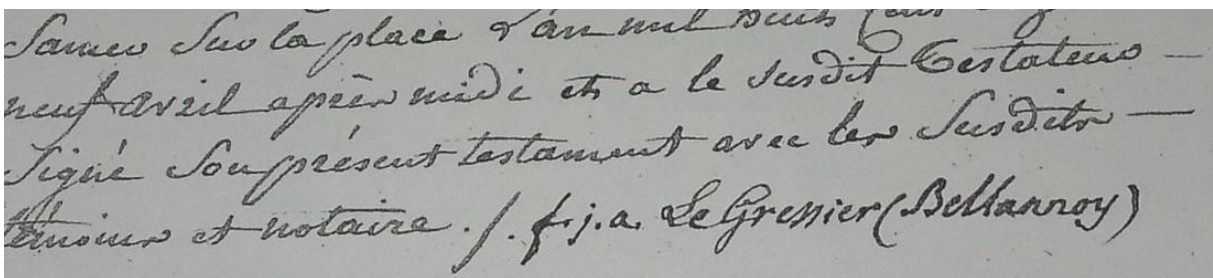 Samer Sur la place L'an mil huit Cent
neuf avril après midi et a le susdit Testateur —
Signé Son présent testament avec les Susdits —
témoins et notaire ./. f.j.a. Le Gressier (Bellannoy)